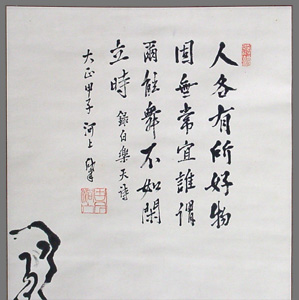 人各有所好物
固無常宜誰謂
爾能舞不如閑
立時 錄白樂天詩
大正甲子 河上肇